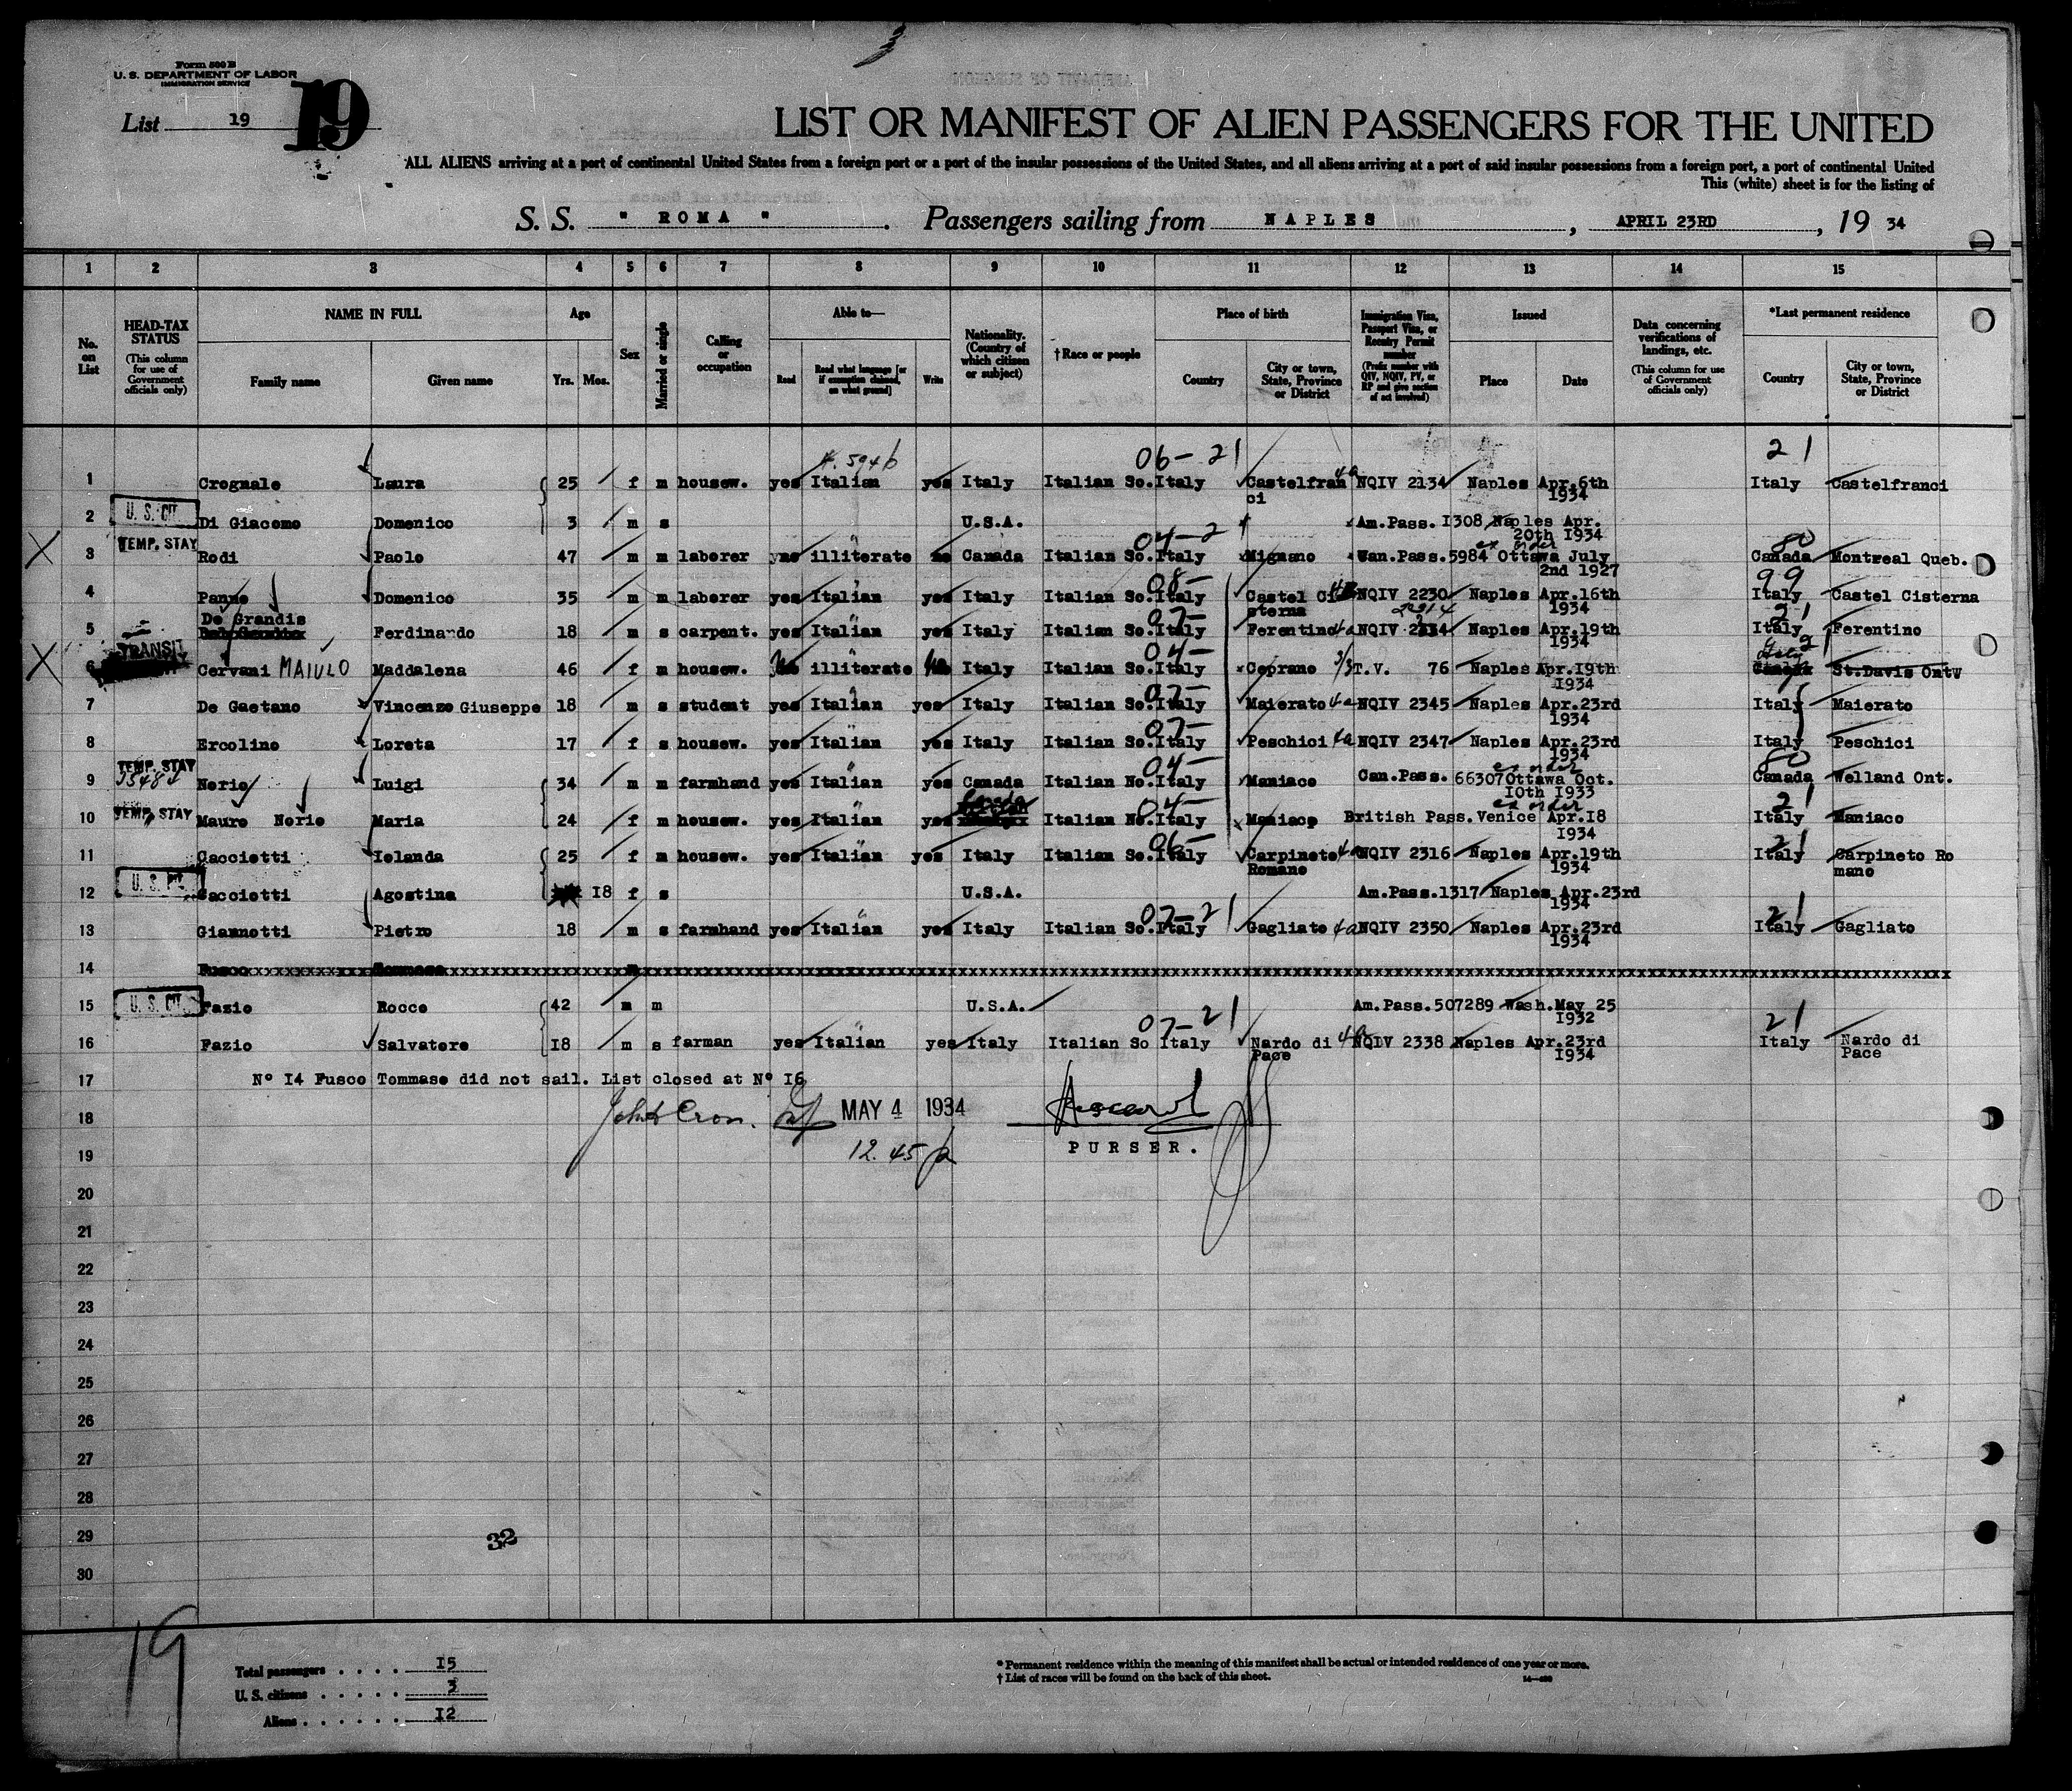 Form 500 B
U. S. DEPARTMENT OF LABOR
IMMIGRATION SERVICE
List 19 19
LIST OR MANIFEST OF ALIEN PASSENGERS FOR THE UNITED
ALL ALIENS arriving at a port of continental United States from a foreign port or a port of the insular possessions of the United States, and all aliens arriving at a port of said insular possessions from a foreign port, a port of continental United
This (white) sheet is for the listing of
S. S. " ROMA " . Passengers sailing from NAPLES , APRIL 23RD , 19 34
1 2 3 4 5 6 7 8 9 10 11 12 13 14 15
No. on List
HEAD-TAX STATUS (This column for use of Government officials only)
NAME IN FULL Family name Given name
Age Yrs. Mos.
Sex
Married or single
Calling or occupation
Able to— Read Read what language [or if exemption claimed, on what ground] Write
Nationality. (Country of which citizen or subject)
†Race or people
Place of birth Country City or town, State, Province or District
Immigration Visa, Passport Visa, or Reentry Permit number (Prefix number with QIV, NQIV, PV, or RP and give section of act involved)
Issued Place Date
Data concerning verifications of landings, etc. (This column for use of Government officials only)
*Last permanent residence Country City or town, State, Province or District
06- 21 21
1 Cregnale Laura 25 f m housew. yes Italian yes Italy Italian So. Italy Castelfran 4a NQIV 2134 Naples Apr.6th Italy Castelfranci
ci 1934
U. S. CIT.
2 Di Giacomo Domenico 3 m s U.S.A. Am.Pass. I308 Naples Apr.
20th I934
TEMP. STAY 04-2 80
3 Rodi Paolo 47 m m laborer illiterate Canada Italian So. Italy Mignano 5984 Ottawa July Canada Montreal Queb.
2nd 1927
08- 99
4 Panne Domenico 35 m m laborer yes Italian yes Italy Italian So. Italy Castel Ci NQIV 2230 Naples Apr.16th Italy Castel Cisterna
sterna 1934
De Grandis 07- 21
5 Ferdinando 18 m s carpent. yes Italian yes Italy Italian So. Italy Ferentino 4a NQIV Naples Apr.19th Italy Ferentino
1934
TRANSIT 04- Italy
6 Cervani MAIULO Maddalena 46 f m housew. illiterate Italy Italian So. Italy Ceprano 3/3 T.V. 76 Naples Apr.I9th St.Davis Ont
I934
07-
7 De Gaetano Vincenzo Giuseppe 18 m s student yes Italian yes Italy Italian So. Italy Maierato 4a NQIV 2345 Naples Apr.23rd Italy Maierato
1934
07-
8 Ercolino Loreta 17 f s housew. yes Italian yes Italy Italian So. Italy Peschici 4a NQIV 2347 Naples Apr.23rd Italy Peschici
1934
TEMP. STAY 04- 80
9 Nerio Luigi 34 m m farmhand yes Italian yes Canada Italian No. Italy Maniaco Can.Pass. 66307 Ottawa Oct. Canada Welland Ont.
I0th I933
TEMP. STAY 04- 21
10 Mauro Nerio Maria 24 f m housew. yes Italian yes Italian No. Italy Maniaco British Pass. Venice Apr.I8 Italy Maniaco
I934
06- 21
11 Caccietti Ielanda 25 f m housew. yes Italian yes Italy Italian So. Italy Carpineto NQIV 2316 Naples Apr.19th Italy Carpineto Ro
Romano 1934 mano
12 Caccietti Agostina I8 f s U.S.A. Am.Pass.1317 Naples Apr.23rd
1934
07-21 21
13 Giannotti Pietro 18 m s farmhand yes Italian yes Italy Italian So. Italy Gagliato 4a NQIV 2350 Naples Apr.23rd Italy Gagliato
1934
14 Fusco Tommaso
U. S. CIT.
15 Fazio Rocco 42 m m U.S.A. Am.Pass. 507289 Wash.May 25
I932
07-21 21
16 Fazio Salvatore I8 m s farman yes Italian yes Italy Italian So Italy Nardo di 4a NQIV 2338 Naples Apr.23rd Italy Nardo di
Pace I934 Pace
17 Nº I4 Fusco Tommaso did not sail. List closed at Nº I6
18 MAY 4 1934
19 12.45 p PURSER.
20
21
22
23
24
25
26
27
28
29 32
30
19
Total passengers . . . . I5
U. S. citizens . . . . . 3
Aliens . . . . . . I2
* Permanent residence within the meaning of this manifest shall be actual or intended residence of one year or more.
† List of races will be found on the back of this sheet.